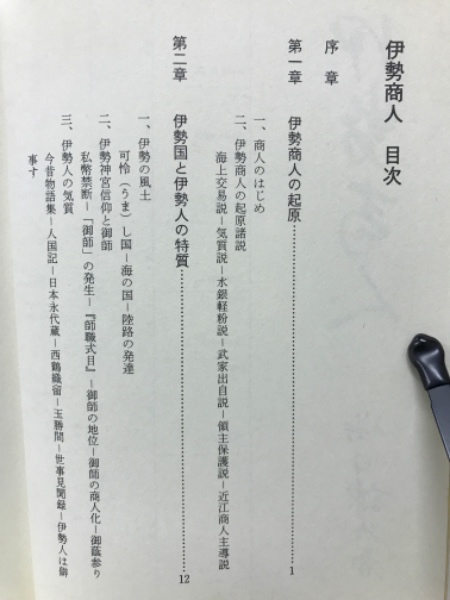 伊勢商人 目次
序章
第一章 伊勢商人の起原…………………………1
一、商人のはじめ
二、伊勢商人の起原諸説
海上交易説－気質説－水銀軽粉説－武家出自説－領主保護説－近江商人主導説
第二章 伊勢国と伊勢人の特質…………………………12
一、伊勢の風土
可怜（うま）し国－海の国－陸路の発達
二、伊勢神宮信仰と御師
私幣禁断－「御師」の発生－『師職式目』－御師の地位－御師の商人化－御蔭参り
三、伊勢人の気質
今昔物語集－人国記－日本永代蔵－西鶴織留－玉勝間－世事見聞録－伊勢人は僻
事す